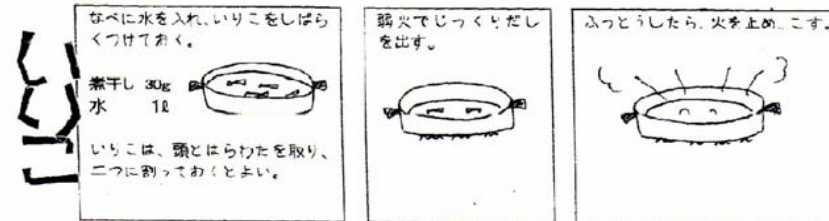 なべに水を入れ、いりこをしばら
くつけておく。
煮干し 30g
水 1ℓ
いりこは、頭とはらわたを取り、
二つに割っておくとよい。
弱火でじっくりだし
を出す。
ふっとうしたら、火を止め、こす。